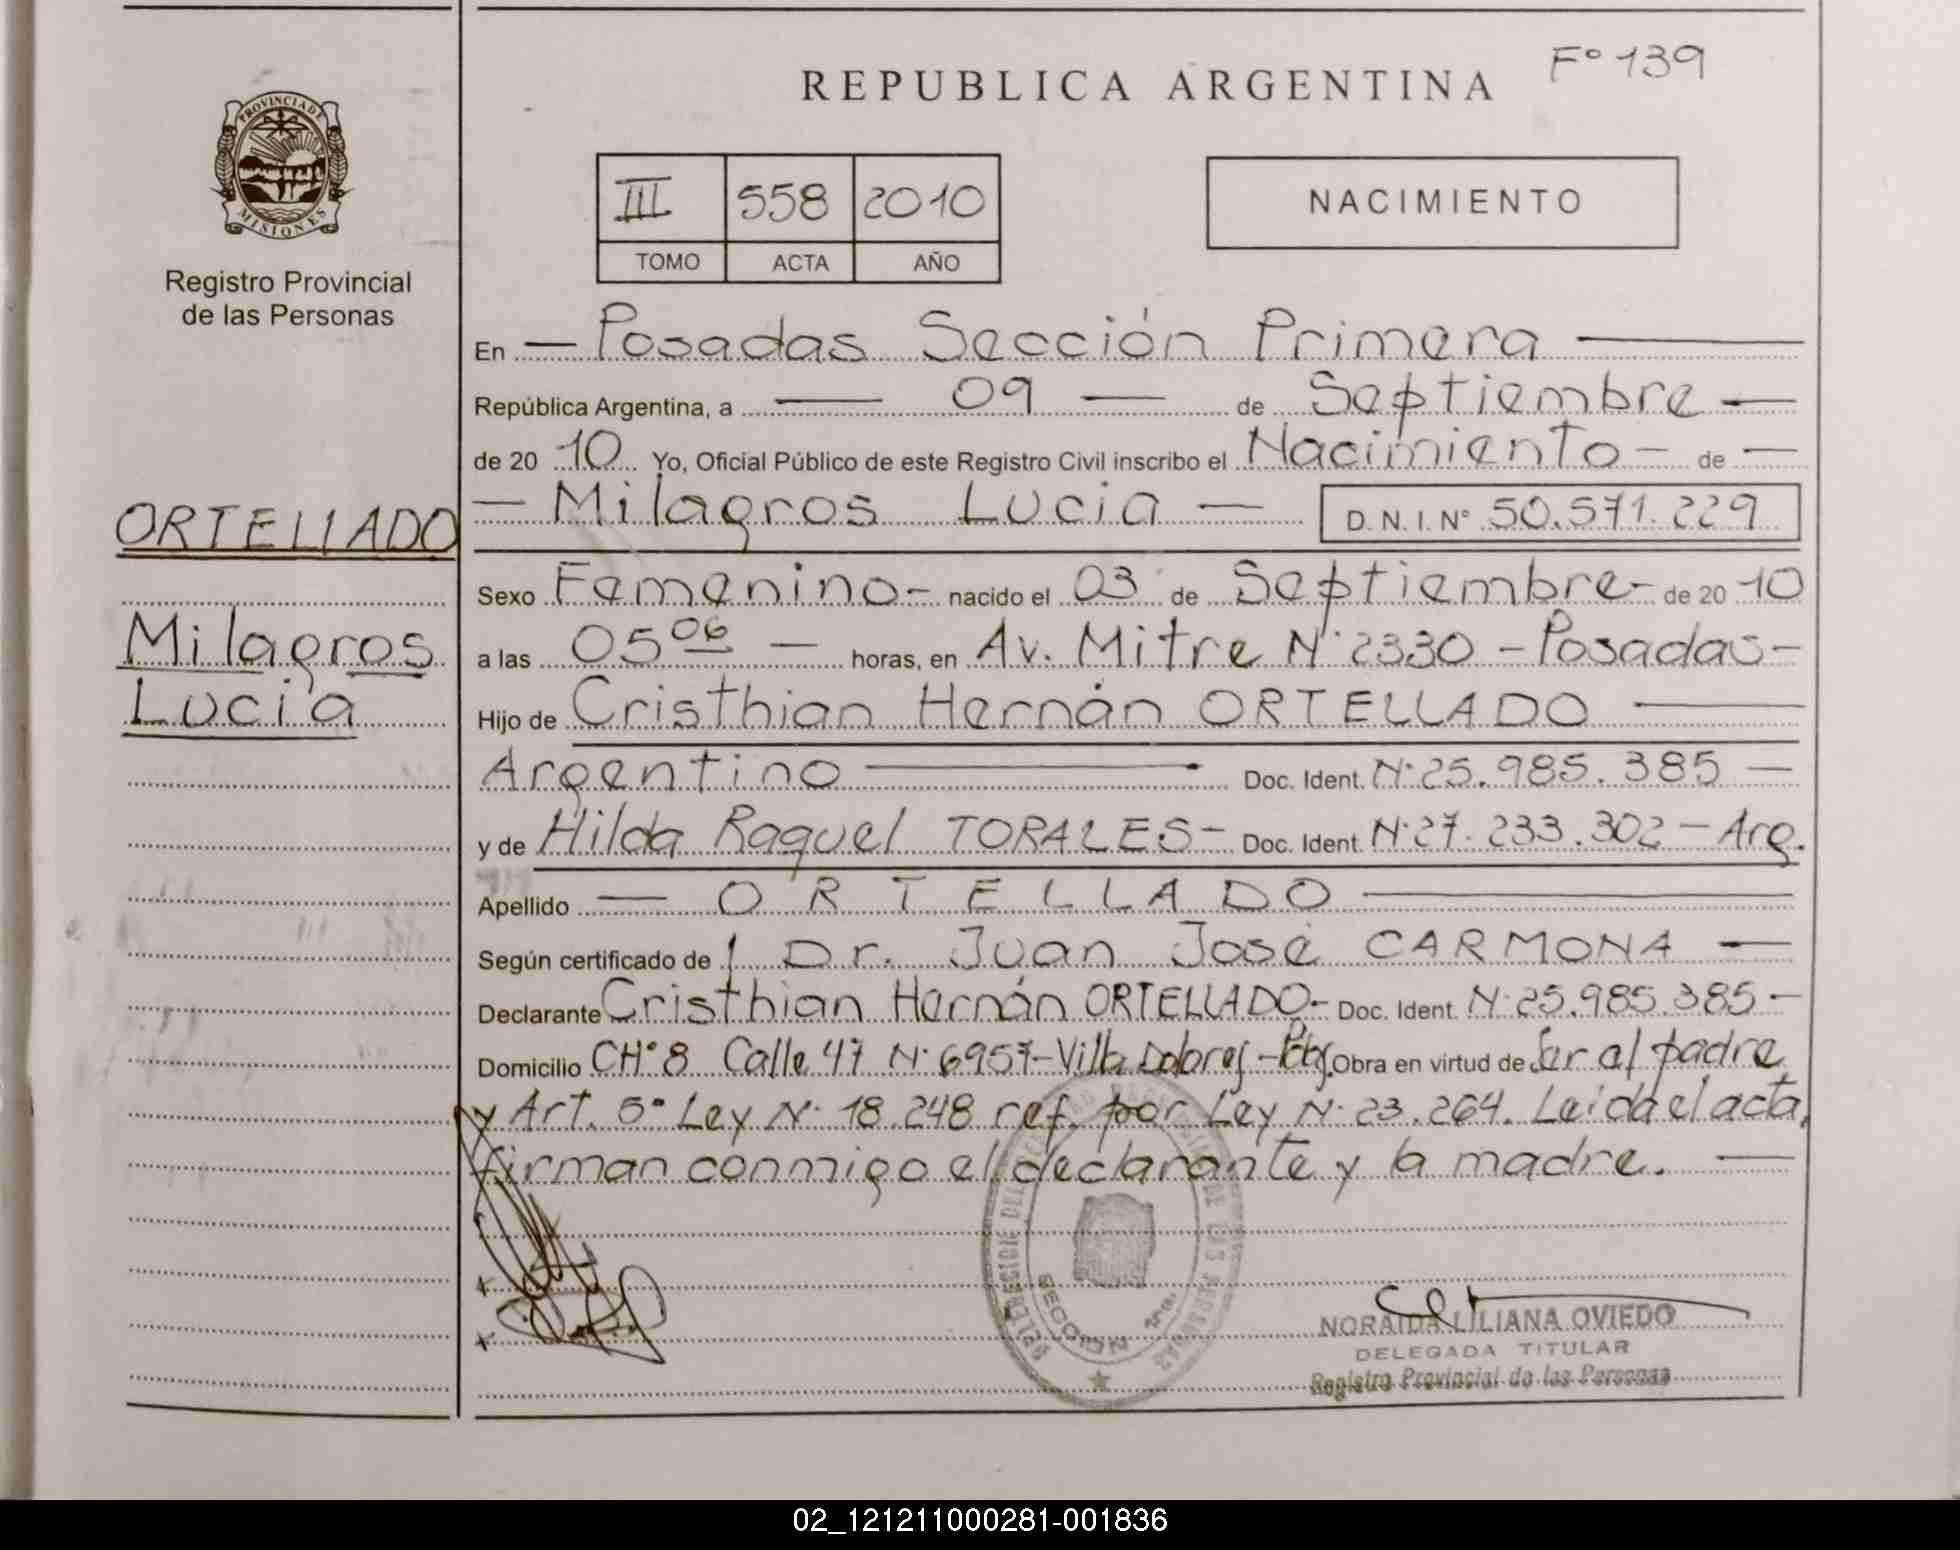 Fº 139
REPUBLICA ARGENTINA
PROVINCIA DE
MISIONES
Registro Provincial
de las Personas
III 558 2010
TOMO ACTA AÑO
NACIMIENTO
En — Posadas Sección Primera —
República Argentina, a — 09 — de Septiembre —
de 20 10 Yo, Oficial Público de este Registro Civil inscribo el Nacimiento — de —
— Milagros Lucia — D.N.I. Nº 50.571.229
ORTELLADO
Milagros
Lucia
Sexo Femenino - nacido el 03 de Septiembre - de 20 10
a las 05 06 — horas, en Av. Mitre Nº 2330 - Posadas -
Hijo de Cristhian Hernán ORTELLADO —
Argentino — Doc. Ident. Nº 25.985.385 —
y de Hilda Raquel TORALES - Doc. Ident. Nº 27.233.302 - Arg.
Apellido — ORTELLADO —
Según certificado de Dr. Juan José CARMONA —
Declarante Cristhian Hernán ORTELLADO - Doc. Ident. Nº 25.985.385 -
Domicilio CHº 8 Calle 47 Nº 6957 - Villa Dolores - Obra en virtud de Ser el padre
y Art. 5º Ley Nº 18.248 ref. por Ley Nº 23.264. Leida el acta,
firman conmigo el declarante y la madre. —
SECCION
NORAIDA LILIANA OVIEDO
DELEGADA TITULAR
Registro Provincial de las Personas
02_121211000281-001836